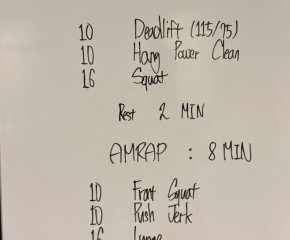 10 Deadlift (115/75)
10 Hang Power Clean
16 Squat
Rest 2 MIN
AMRAP : 8 MIN
10 Front Squat
10 Push Jerk
16 Lunge